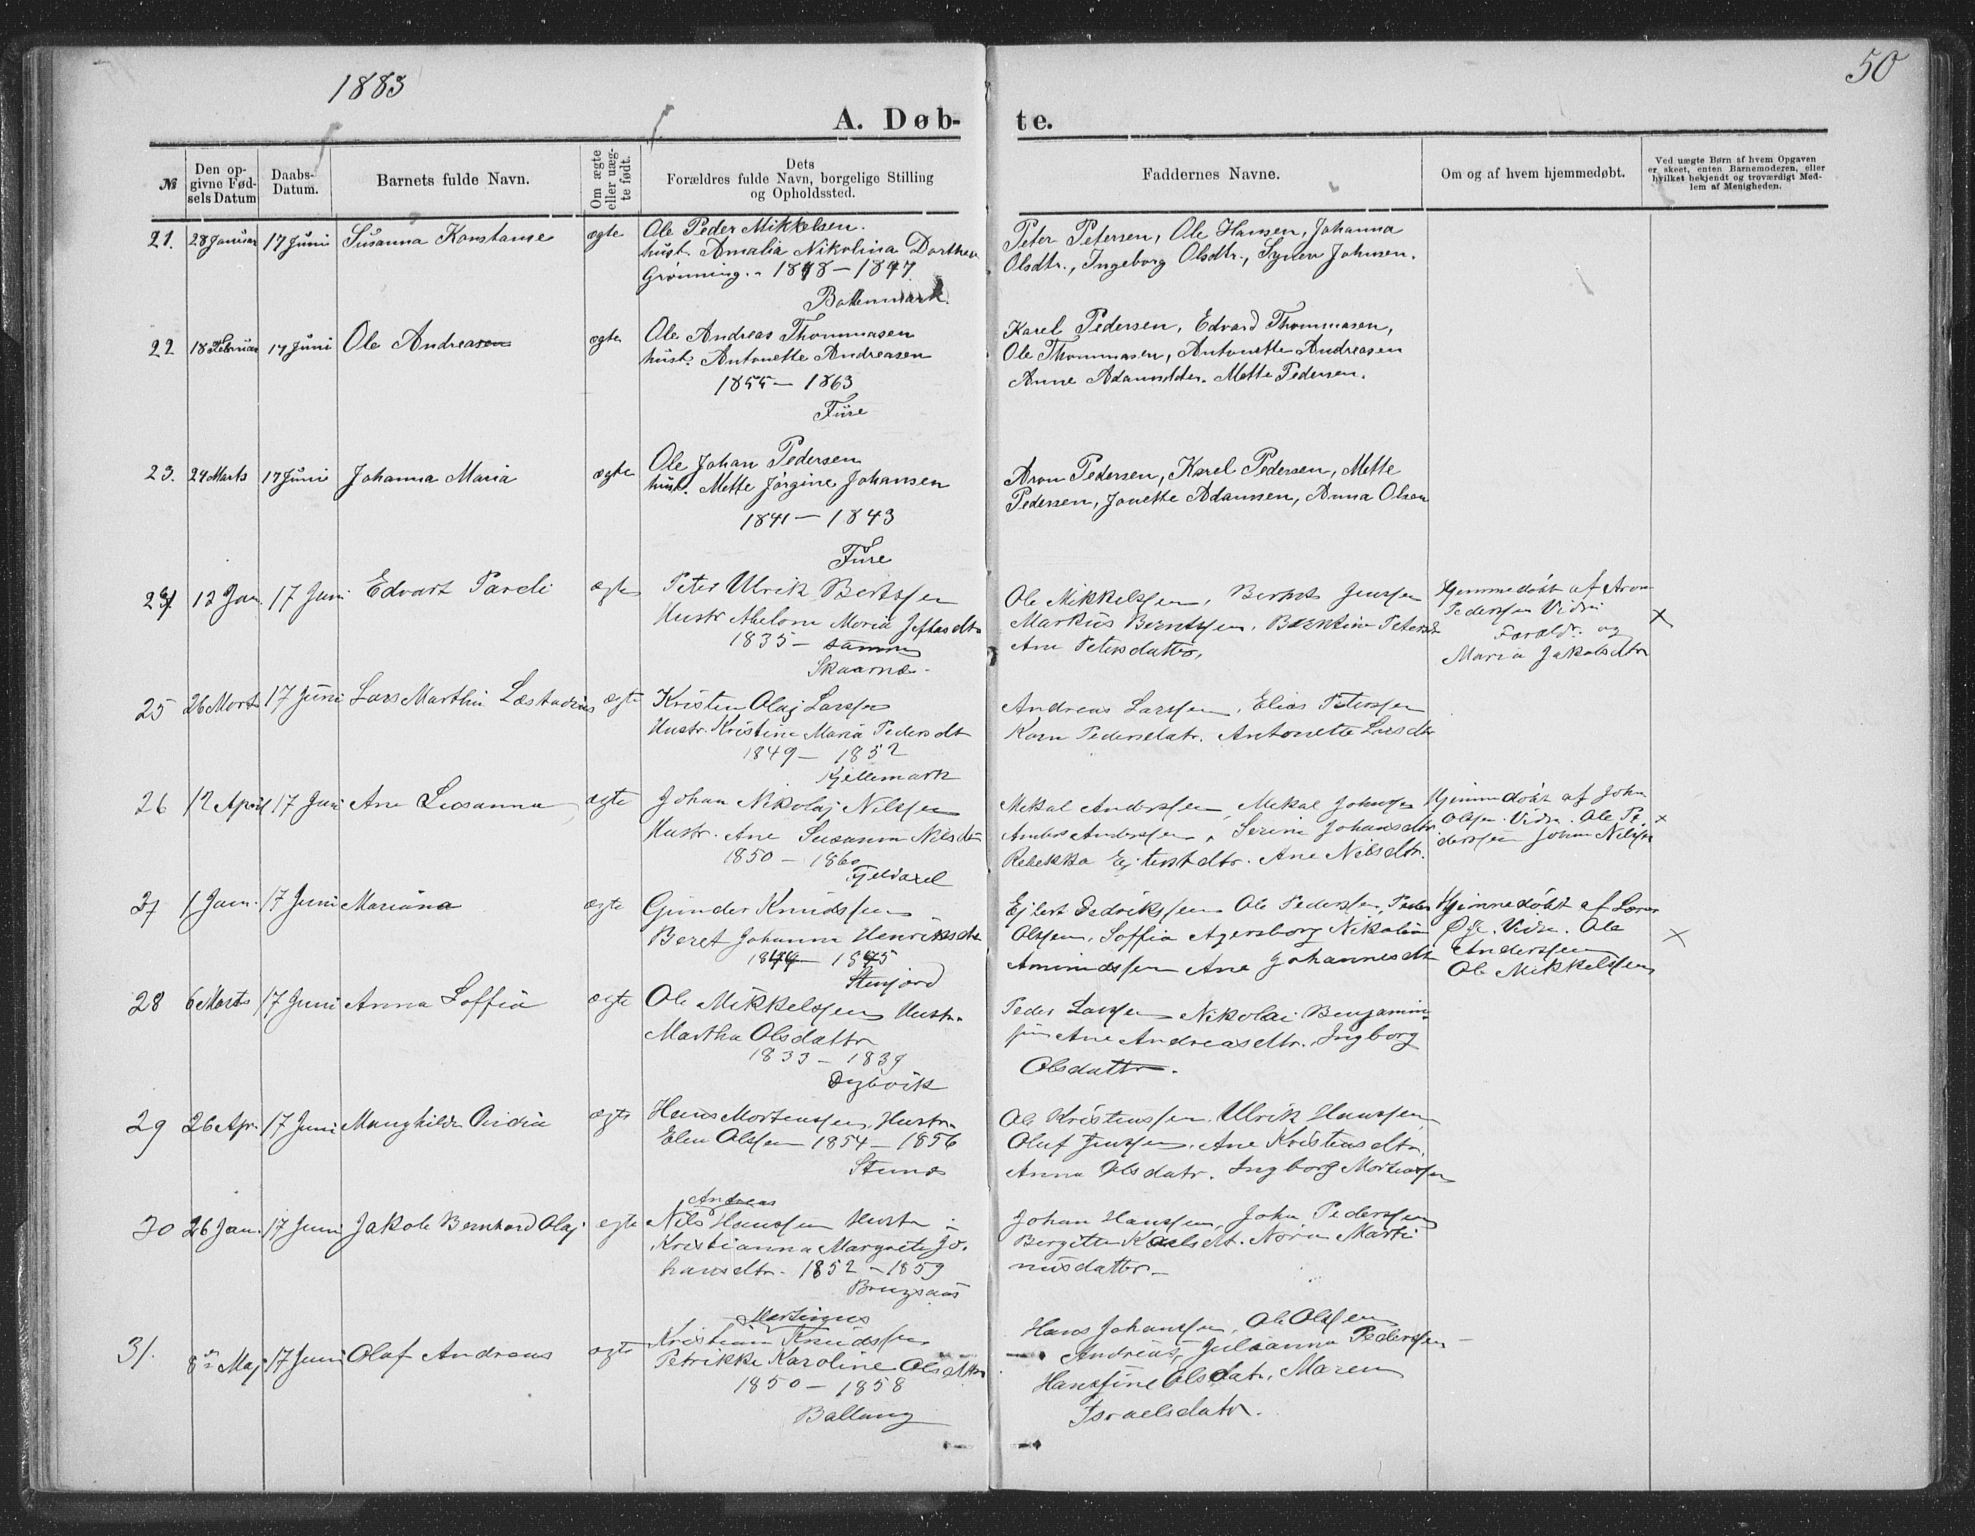 1883
50
A. Døb-
te.
№
Den op-
givne Fød-
sels Datum
Daabs-
Datum.
Barnets fulde Navn.
Om ægte
eller uæg-
te født.
Dets
Forældres fulde Navn, borgelige Stilling
og Opholdssted.
Faddernes Navne.
Om og af hvem hjemmedøbt.
Ved uægte Børn af hvem Opgaven
er skeet, enten Barnemoderen, eller
hvilket bekjendt og troværdigt Med-
lem af Menigheden.
21. 28 Januar 17 Juni Susanna Konstanse ægte
Ole Peder Mikkelsen.
hust. Amalia Nikolina Dorthea
Grønning. 1848 – 1847
Ballenmark.
Peter Petersen, Ole Hansen, Johanna
Olsdtr., Ingeborg Olsdtr., Johnsen.
22 18 Februar 17 Juni Ole Andreasen ægte
Ole Andreas Thommasen
hust. Antonette Andreasen
1855 – 1863
Fure
Karel Pedersen, Edvard Thommasen,
Ole Thommasen, Antonette Andreasen
Anne Mette Pedersen.
23. 24 Marts 17 Juni Johanna Maria ægte
Ole Johan Pedersen
hust. Mette Jørgine Johansen
1841 – 1843
Fure
Aron Pedersen, Karel Pedersen, Mette
Pedersen, Jonette Adamsen, Anna Olsen
24 12 Jan. 17 Juni Edvart Pareli ægte
Peter Ulrik Berntsen
Hustr Abelona Maria Jeftasdtr
1835 – samme
Skaarnæs
Ole Mikkelssen, Bernt Jenssen
Markus Berntssen, Berntine Petersdt
Ane Petersdatter,
Hjemmedøbt af Aron
Pederssen Vidn:
Foræld. og
Maria Jakobsdtr
x
25 26 Mart 17 Juni Lars Marthin Læstadius ægte
Kristen Olaj Larssen
Hustr. Kristine Maria Pedersdt
1849 – 1852
Kjellemark
Andreas Larssen, Elias Peterssen
Karn Pedersdatr. Antonette Larsdtr
26 12 April 17 Juni Ane Susanna ægte
Johan Nikolaj Nilssen
Hustr. Ane Susanna Nilsdtr
1850 – 1860
Fjeldaxel
Mekal Anderssen, Mekal Johnssen
Anders Anderssen, Serine Johansdtr.
Rebekka Ejlertsdtr. Ane Nilsdtr.
Hjemmedøbt af John
Olsen. Vidn. Ole Pe-
derssen Johan Nilssen
x
27 1 Jan. 17 Juni Mariana ægte
Gunder Knudssen
Beret Johanna Henriksdtr
1849 – 1845
Stenjord
Ejlert Dedrikssen Ole Pederssen, Peder
Olssen, Soffia Agersborg Nikolai
Amundssen Ane Johannesdtr
Hjemmedøbt af
Vidn. Ole
Anderssen
Ole Mikkelssen
x
28 6 Marts 17 Juni Anna Soffia ægte
Ole Mikkelssen Hustr.
Martha Olsdattr
1833 – 1839
Dybvik
Peder Larssen Nikolai Benjamin-
ssen Ane Andreasdtr. Ingborg
Olsdattr.
29 26 Apr. 17 Juni Manghilde ægte
Hans Mortenssen, Hustr.
Elen Olssen 1854 – 1856
Ole Kristenssen, Ulrik Hanssen
Oluf Jenssen, Ane Kristensdtr.
Anna Olsdatr. Ingborg Mortenssen
30 26 Jan. 17 Juni Jakob Bernhard Olaj ægte
Andreas
Nils Hanssen Hustr
Kristianna Margrete Jo-
hansdtr. 1852 – 1859
Johan Hanssen, John Pederssen
Bergitte Karelsdt. Nora Marti
nusdatter
31. 8de Maj 17 Juni Olaf Andreas ægte
Martinus
Kristian Knudssen
Petrikke Karoline Olsdtr
1850 – 1858
Ballang
Hans Johanssen, Ole Olssen
Andreas, Julianna Pederssen
Hanssine Olsdatr, Maren
Israelsdatr.